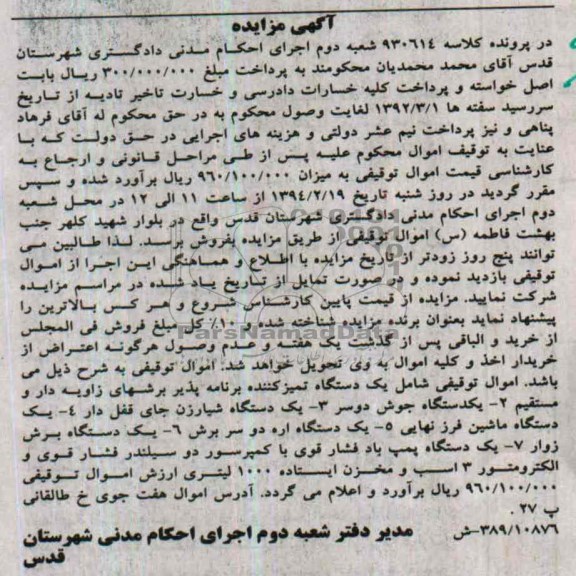 آگهی مزایده
در پرونده کلاسه ۹۳۰۶۱۴ شعبه دوم اجرای احکام مدنی دادگستری شهرستان
قدس آقای محمد محمدیان محکومند به پرداخت مبلغ ۳۰۰/۰۰۰/۰۰۰ ریال بابت
اصل خواسته و پرداخت کلیه خسارات دادرسی و خسارت تاخیر تادیه از تاریخ
سررسید سفته ها ۱۳۹۲/۳/۱ لغایت وصول محکوم به در حق محکوم له آقای فرهاد
پناهی و نیز پرداخت نیم عشر دولتی و هزینه های اجرایی در حق دولت که با
عنایت به توقیف اموال محکوم علیه پس از طی مراحل قانونی و ارجاع به
کارشناسی قیمت اموال توقیفی به میزان ۹۶۰/۱۰۰/۰۰۰ ریال برآورد شده و سپس
مقرر گردید در روز شنبه تاریخ ۱۳۹۴/۲/۱۹ از ساعت ۱۱ الی ۱۲ در محل شعبه
دوم اجرای احکام مدنی دادگستری شهرستان قدس واقع در بلوار شهید کلهر جنب
بهشت فاطمه (س) اموال توقیفی از طریق مزایده بفروش برسد. لذا طالبین می
توانند پنج روز زودتر از تاریخ مزایده با اطلاع و هماهنگی این اجرا از اموال
توقیفی بازدید نموده و در صورت تمایل از تاریخ یاد شده در مراسم مزایده
شرکت نمایند. مزایده از قیمت پایین کارشناس شروع و هر کس بالاترین را
پیشنهاد نماید بعنوان برنده مزایده شناخته شده و ۱۰٪ کل مبلغ فروش فی المجلس
از خرید و الباقی پس از گذشت یک هفته و عدم وصول هرگونه اعتراض از
خریدار اخذ و کلیه اموال به وی تحویل خواهد شد. اموال توقیفی به شرح ذیل می
باشد. اموال توقیفی شامل یک دستگاه تمیزکننده برنامه پذیر برشهای زاویه دار و
مستقیم ۲- یکدستگاه جوش دوسر ۳- یک دستگاه شیارزن جای قفل دار ۴- یک
دستگاه ماشین فرز نهایی ۵- یک دستگاه اره دو سر برش ۶- یک دستگاه برش
زوار ۷- یک دستگاه پمپ باد فشار قوی با کمپرسور دو سیلندر فشار قوی و
الکتروموتور ۳ اسب و مخزن ایستاده ۱۰۰۰ لیتری ارزش اموال توقیفی
۹۶۰/۱۰۰/۰۰۰ ریال برآورد و اعلام می گردد. آدرس اموال هفت جوی خ طالقانی
پ ۲۷ .
۳۸۹/۱۰۸۷۶-ش
مدیر دفتر شعبه دوم اجرای احکام مدنی شهرستان
قدس
ParsNamadData